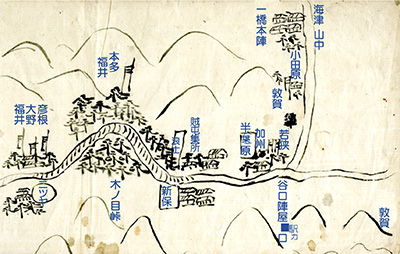 海津 山中
一橋本陣
小田原
敦賀
本多
福井
彦根
大野
福井
賊屯集所
浪士
半葉原
加州
若狭
二ツヤ
木ノ目峠
新保
谷口陣屋
駅カ
口
敦賀